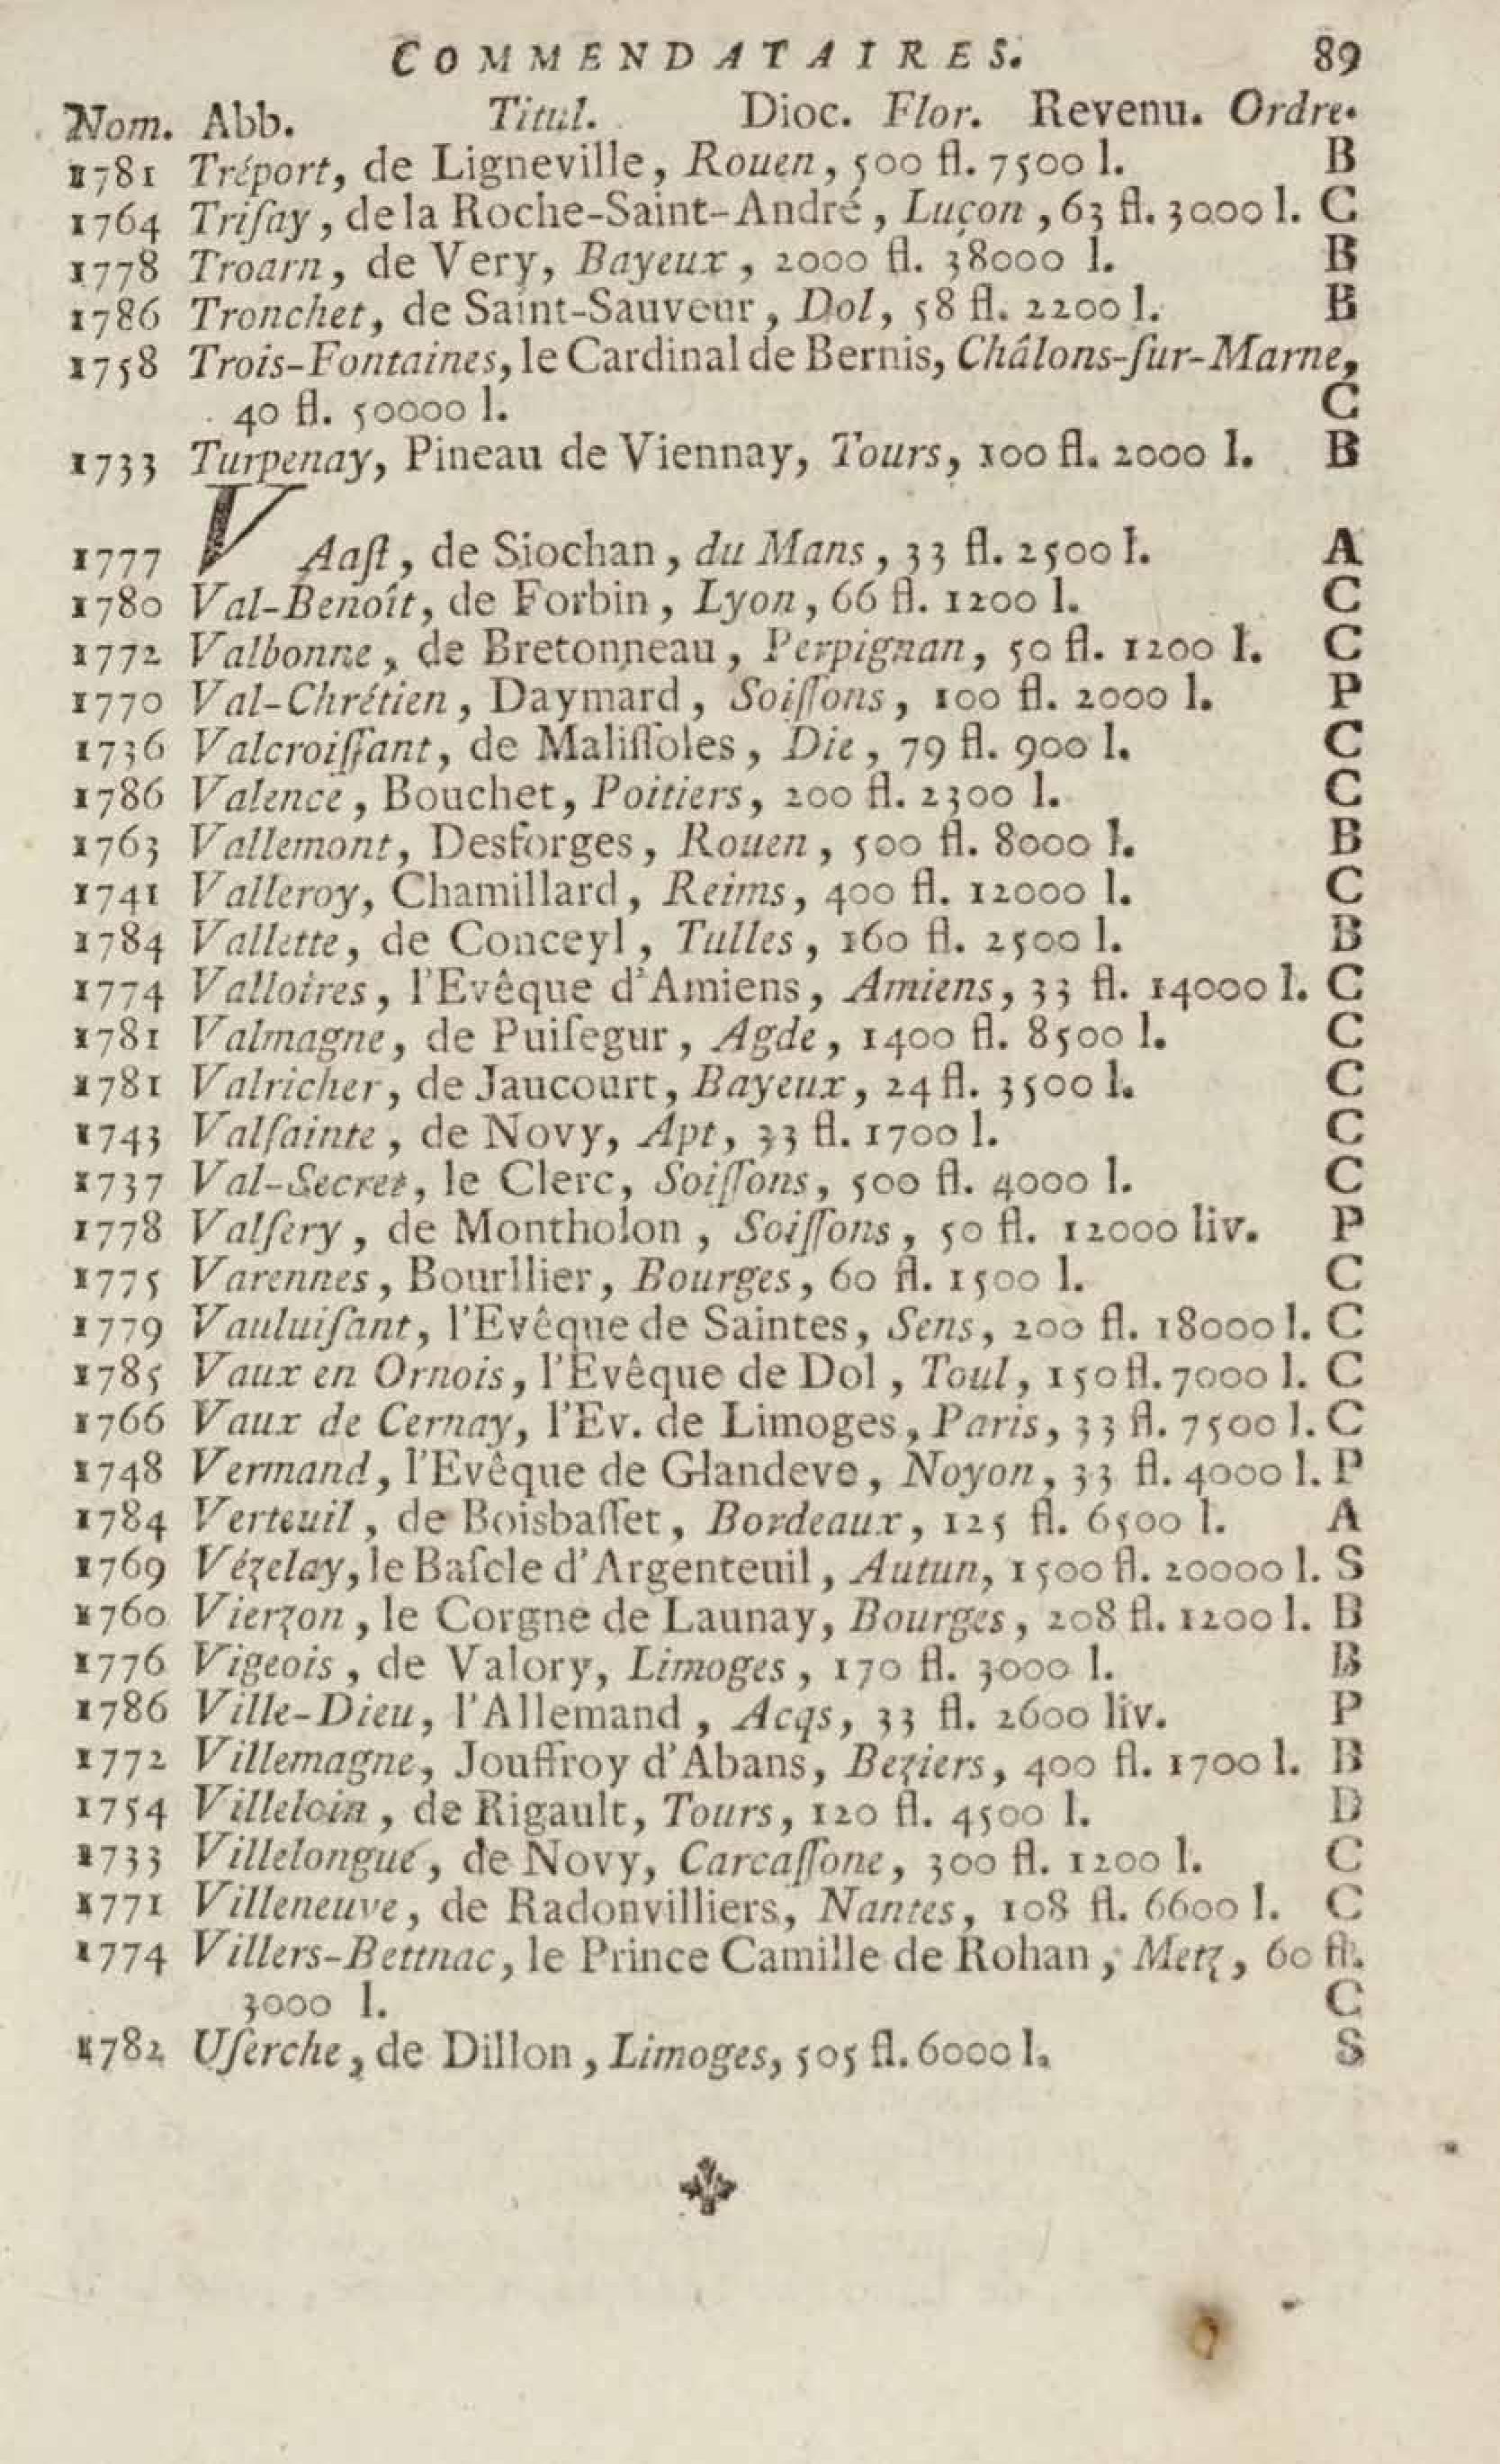 COMMENDATAIRES. 89
Nom. Abb. Titul. Dioc. Flor. Revenu. Ordre.
1781 Tréport, de Ligneville, Rouen, 500 fl. 7500 l. B
1764 Triſay, de la Roche-Saint-André, Luçon, 63 fl. 3000 l. C
1778 Troarn, de Very, Bayeux, 2000 fl. 38000 l. B
1786 Tronchet, de Saint-Sauveur, Dol, 58 fl. 2200 l. B
1758 Trois-Fontaines, le Cardinal de Bernis, Châlons-ſur-Marne,
40 fl. 50000 l. C
1733 Turpenay, Pineau de Viennay, Tours, 100 fl. 2000 l. B
1777 VAaſt, de Siochan, du Mans, 33 fl. 2500 l. A
1780 Val-Benoît, de Forbin, Lyon, 66 fl. 1200 l. C
1772 Valbonne, de Bretonneau, Perpignan, 50 fl. 1200 l. C
1770 Val-Chrétien, Daymard, Soiſſons, 100 fl. 2000 l. P
1736 Valcroiſſant, de Maliſſoles, Die, 79 fl. 900 l. C
1786 Valence, Bouchet, Poitiers, 200 fl. 2300 l. C
1763 Vallemont, Desforges, Rouen, 500 fl. 8000 l. B
1741 Valleroy, Chamillard, Reims, 400 fl. 12000 l. C
1784 Vallette, de Conceyl, Tulles, 160 fl. 2500 l. B
1774 Valloires, l'Evêque d'Amiens, Amiens, 33 fl. 14000 l. C
1781 Valmagne, de Puiſegur, Agde, 1400 fl. 8500 l. C
1781 Valricher, de Jaucourt, Bayeux, 24 fl. 3500 l. C
1743 Valſainte, de Novy, Apt, 33 fl. 1700 l. C
1737 Val-Secret, le Clerc, Soiſſons, 500 fl. 4000 l. C
1778 Valſery, de Montholon, Soiſſons, 50 fl. 12000 liv. P
1775 Varennes, Bourllier, Bourges, 60 fl. 1500 l. C
1779 Vauluiſant, l'Evêque de Saintes, Sens, 200 fl. 18000 l. C
1785 Vaux en Ornois, l'Evêque de Dol, Toul, 150 fl. 7000 l. C
1766 Vaux de Cernay, l'Ev. de Limoges, Paris, 33 fl. 7500 l. C
1748 Vermand, l'Evêque de Glandeve, Noyon, 33 fl. 4000 l. P
1784 Verteuil, de Boisbaſſet, Bordeaux, 125 fl. 6500 l. A
1769 Vézelay, le Baſcle d'Argenteuil, Autun, 1500 fl. 20000 l. S
1760 Vierzon, le Corgne de Launay, Bourges, 208 fl. 1200 l. B
1776 Vigeois, de Valory, Limoges, 170 fl. 3000 l. B
1786 Ville-Dieu, l'Allemand, Acqs, 33 fl. 2600 liv. P
1772 Villemagne, Jouffroy d'Abans, Beziers, 400 fl. 1700 l. B
1754 Villeloin, de Rigault, Tours, 120 fl. 4500 l. D
1733 Villelongue, de Novy, Carcaſſone, 300 fl. 1200 l. C
1771 Villeneuve, de Radonvilliers, Nantes, 108 fl. 6600 l. C
1774 Villers-Bettnac, le Prince Camille de Rohan, Metz, 60 fl.
3000 l. C
1782 Uſerche, de Dillon, Limoges, 505 fl. 6000 l. S